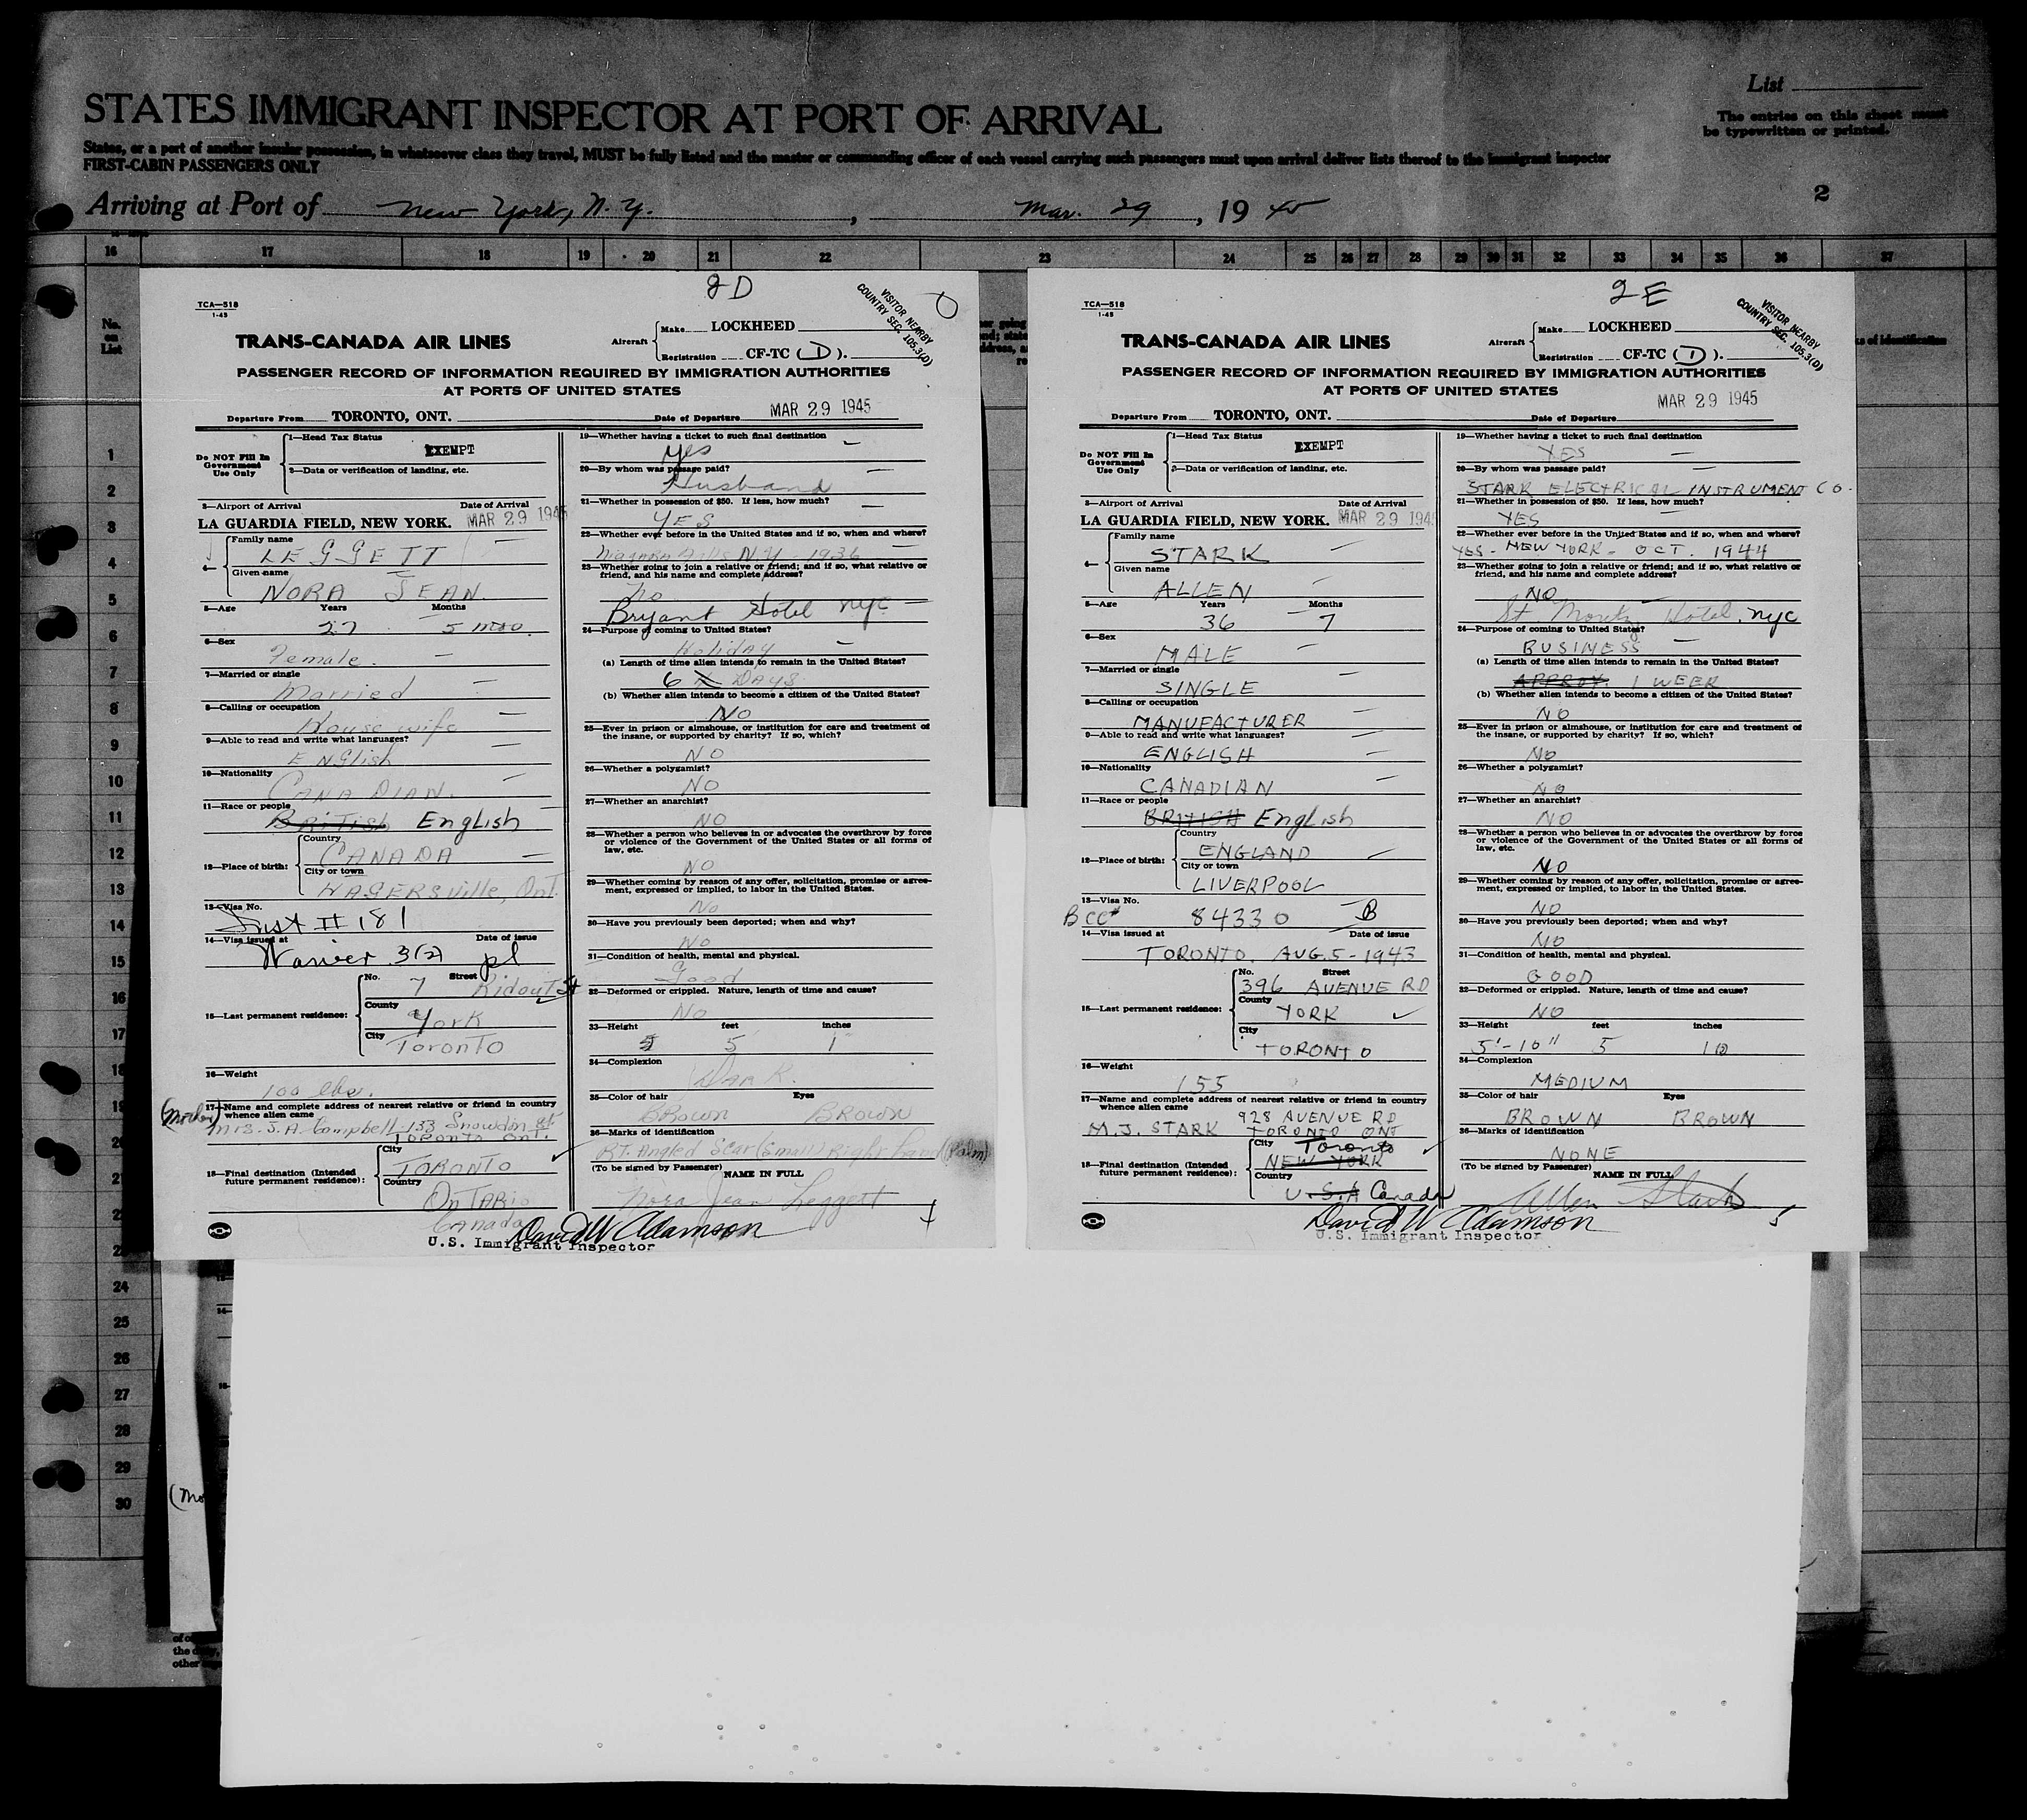 List
STATES IMMIGRANT INSPECTOR AT PORT OF ARRIVAL
The entries on this sheet must
be typewritten or printed.
States, or a port of another insular possession, in whatsoever class they travel, MUST be fully listed and the master or commanding officer of each vessel carrying such passengers must upon arrival deliver lists thereof to the immigrant inspector
FIRST-CABIN PASSENGERS ONLY
2
Arriving at Port of New York, N.Y., Mar. 29, 19 45
16 17 18 19 20 21 22 23 24 25 26 27 28 29 30 31 32 33 34 35 36 37
No.
on
List
1
2
3
4
5
6
7
8
9
10
11
12
13
14
15
16
17
18
19
20
21
22
24
25
26
27
28
29
30
2D
TCA—518
1-45
VISITOR NEARBY
COUNTRY SEC. 105.3(D)
Aircraft
Make LOCKHEED
Registration CF-TC (D).
TRANS-CANADA AIR LINES
PASSENGER RECORD OF INFORMATION REQUIRED BY IMMIGRATION AUTHORITIES
AT PORTS OF UNITED STATES
Departure From TORONTO, ONT. Date of Departure MAR 29 1945
Do NOT Fill In
Government
Use Only
1—Head Tax Status EXEMPT
2—Data or verification of landing, etc.
3—Airport of Arrival Date of Arrival
LA GUARDIA FIELD, NEW YORK. MAR 29 1945
4—
Family name
LEGGETT
Given name
NORA JEAN
5—Age Years Months
27 5 mso.
6—Sex
Female.
7—Married or single
Married
8—Calling or occupation
Housewife
9—Able to read and write what languages?
ENGlish
10—Nationality
CANADIAN.
11—Race or people
British English
12—Place of birth:
Country
CANADA
City or town
HAGERSville, Ont.
13—Visa No.
Inst II 181
14—Visa issued at Date of issue
Waiver 3(2) pl
15—Last permanent residence:
No. Street
7 Ridout St
County
York
City
Toronto
16—Weight
100 lbs.
17—Name and complete address of nearest relative or friend in country
whence alien came
(Mother)
Mrs. J.A. Campbell 133 Snowdon
Toronto Ont.
18—Final destination (Intended
future permanent residence):
City
TORONTO
Country
OnTARio
Canada
19—Whether having a ticket to such final destination
Yes
20—By whom was passage paid?
Husband
21—Whether in possession of $50. If less, how much?
YES
22—Whether ever before in the United States and if so, when and where?
Niagara Falls N.Y. 1936
23—Whether going to join a relative or friend; and if so, what relative or
friend, and his name and complete address?
No
Bryant Hotel nyc
24—Purpose of coming to United States?
Holiday
(a) Length of time alien intends to remain in the United States?
6 DAYS
(b) Whether alien intends to become a citizen of the United States?
NO
25—Ever in prison or almshouse, or institution for care and treatment of
the insane, or supported by charity? If so, which?
NO
26—Whether a polygamist?
NO
27—Whether an anarchist?
NO
28—Whether a person who believes in or advocates the overthrow by force
or violence of the Government of the United States or all forms of
law, etc.
NO
29—Whether coming by reason of any offer, solicitation, promise or agree-
ment, expressed or implied, to labor in the United States.
No
30—Have you previously been deported; when and why?
No
31—Condition of health, mental and physical.
Good
32—Deformed or crippled. Nature, length of time and cause?
No
33—Height feet inches
5 5' 1"
34—Complexion
DARK.
35—Color of hair Eyes
BROWN BROWN
36—Marks of identification
RT. Angled Scar (small) Right hand (Palm)
(To be signed by Passenger) NAME IN FULL
Nora Jean Leggett
David W Adamson
U.S. Immigrant Inspector
2E
TCA—518
1-45
VISITOR NEARBY
COUNTRY SEC. 105.3(D)
Aircraft
Make LOCKHEED
Registration CF-TC (I).
TRANS-CANADA AIR LINES
PASSENGER RECORD OF INFORMATION REQUIRED BY IMMIGRATION AUTHORITIES
AT PORTS OF UNITED STATES
Departure From TORONTO, ONT. Date of Departure MAR 29 1945
Do NOT Fill In
Government
Use Only
1—Head Tax Status EXEMPT
2—Data or verification of landing, etc.
3—Airport of Arrival Date of Arrival
LA GUARDIA FIELD, NEW YORK. MAR 29 194
4—
Family name
STARK
Given name
ALLEN
5—Age Years Months
36 7
6—Sex
MALE
7—Married or single
SINGLE
8—Calling or occupation
MANUFACTURER
9—Able to read and write what languages?
ENGLISH
10—Nationality
CANADIAN
11—Race or people
BRITISH English
12—Place of birth:
Country
ENGLAND
City or town
LIVERPOOL
13—Visa No.
BCC# 84330 B
14—Visa issued at Date of issue
TORONTO. AUG. 5 - 1943
15—Last permanent residence:
No. Street
396 AVENUE RD
County
YORK
City
TORONTO
16—Weight
155
17—Name and complete address of nearest relative or friend in country
whence alien came
928 AVENUE RD
M.J. STARK TORONTO ONT
18—Final destination (Intended
future permanent residence):
City
Toronto
NEW YORK
Country
U.S.A Canada
19—Whether having a ticket to such final destination
YES
20—By whom was passage paid?
STARK ELECTRICAL INSTRUMENT CO.
21—Whether in possession of $50. If less, how much?
YES
22—Whether ever before in the United States and if so, when and where?
YES - NEW YORK - OCT. 1944
23—Whether going to join a relative or friend; and if so, what relative or
friend, and his name and complete address?
NO
St Moritz Hotel. nyc
24—Purpose of coming to United States?
BUSINESS
(a) Length of time alien intends to remain in the United States?
APPROX. 1 WEEK
(b) Whether alien intends to become a citizen of the United States?
NO
25—Ever in prison or almshouse, or institution for care and treatment of
the insane, or supported by charity? If so, which?
NO
26—Whether a polygamist?
NO
27—Whether an anarchist?
NO
28—Whether a person who believes in or advocates the overthrow by force
or violence of the Government of the United States or all forms of
law, etc.
NO
29—Whether coming by reason of any offer, solicitation, promise or agree-
ment, expressed or implied, to labor in the United States.
NO
30—Have you previously been deported; when and why?
NO
31—Condition of health, mental and physical.
GOOD
32—Deformed or crippled. Nature, length of time and cause?
NO
33—Height feet inches
5'-10" 5 10
34—Complexion
MEDIUM
35—Color of hair Eyes
BROWN BROWN
36—Marks of identification
NONE
(To be signed by Passenger) NAME IN FULL
Allen Stark
David W Adamson
U.S. Immigrant Inspector